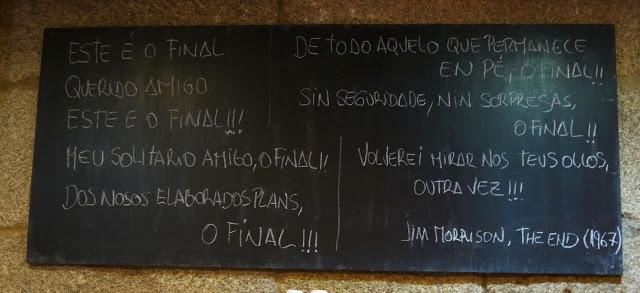 ESTE É O FINAL
QUERIDO AMIGO
ESTE E O FINAL!!!
MEU SOLITARIO AMIGO, O FINAL!!
DOS NOSOS ELABORADOS PLANS,
O FINAL!!!
DE TODO AQUELO QUE PERMANECE
EN PÉ, O FINAL!!
SIN SEGURIDADE, NIN SORPRESAS,
O FINAL!!
VOLVEREI MIRAR NOS TEUS OLLOS,
OUTRA VEZ!!!
JIM MORRISON, THE END (1967)